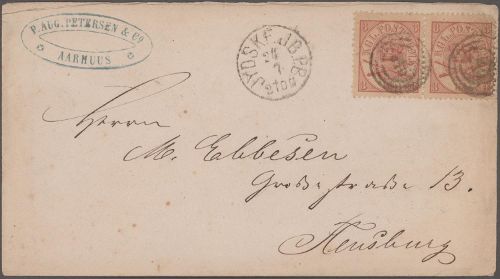 P. AUG. PETERSEN & Co
AARHUUS
JYDSKE JB PB
24
7
2 TOG
KGL. POST
KGL. POST
Herrn
M. Ebbesen
Grossestrasse 13.
Flensburg